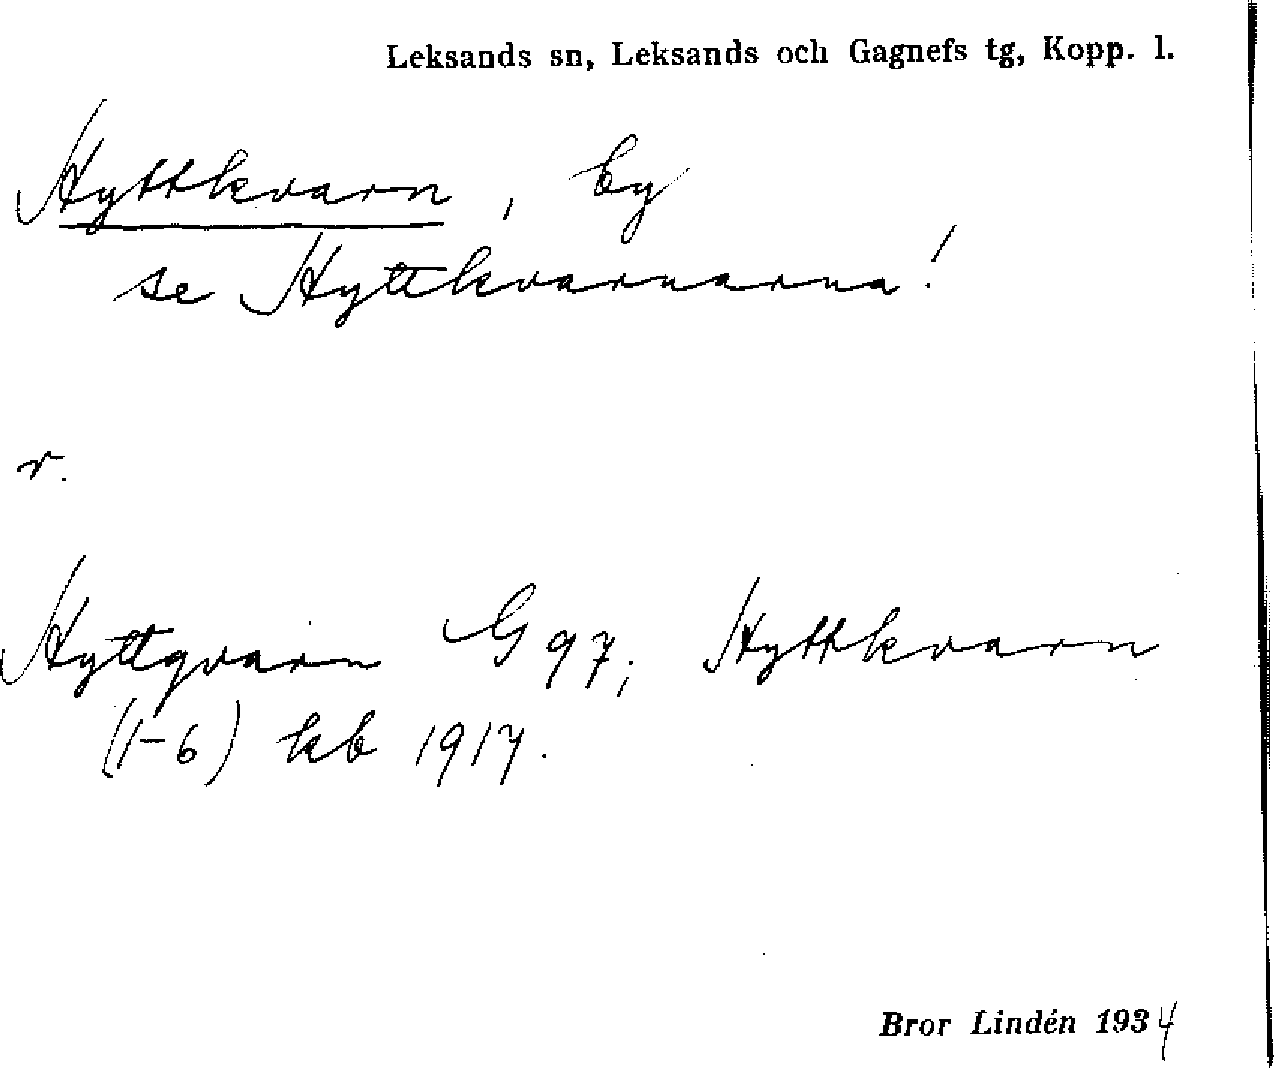 Leksands sn, Leksands och Gagnefs tg, Kopp. l.
Hyttkvarn, by
se Hyttkvarnarna!
r.
Hyttqvarn G 97; Hyttkvarn
(1-6) kb 1917.
Bror Lindén 1934